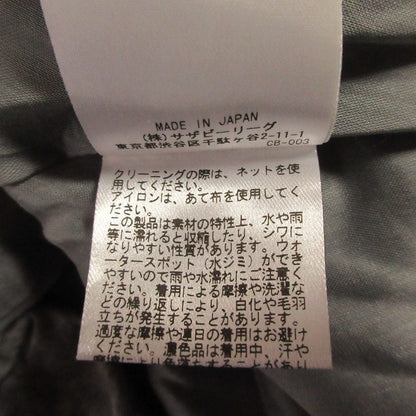 MADE IN JAPAN
(株)サザビーリーグ
東京都渋谷区千駄ヶ谷2-11-1
CB-003
クリーニングの際は、ネットを使
用してください。
アイロンは、あて布を使用してく
ださい。
この製品は素材の特性上、水や雨
等に濡れると収縮したり、シワに
なりやすい性質があります。ウオ
ータースポット(水ジミ)ができ
やすいので雨や水濡れにご注意く
ださい。着用による摩擦や洗濯な
どの繰り返しにより、白化や毛羽
立ちが発生することがあります。
過度な摩擦や連日の着用はお避け
ください。濃色品は着用中、汗や
摩擦により色落ちすることがあ